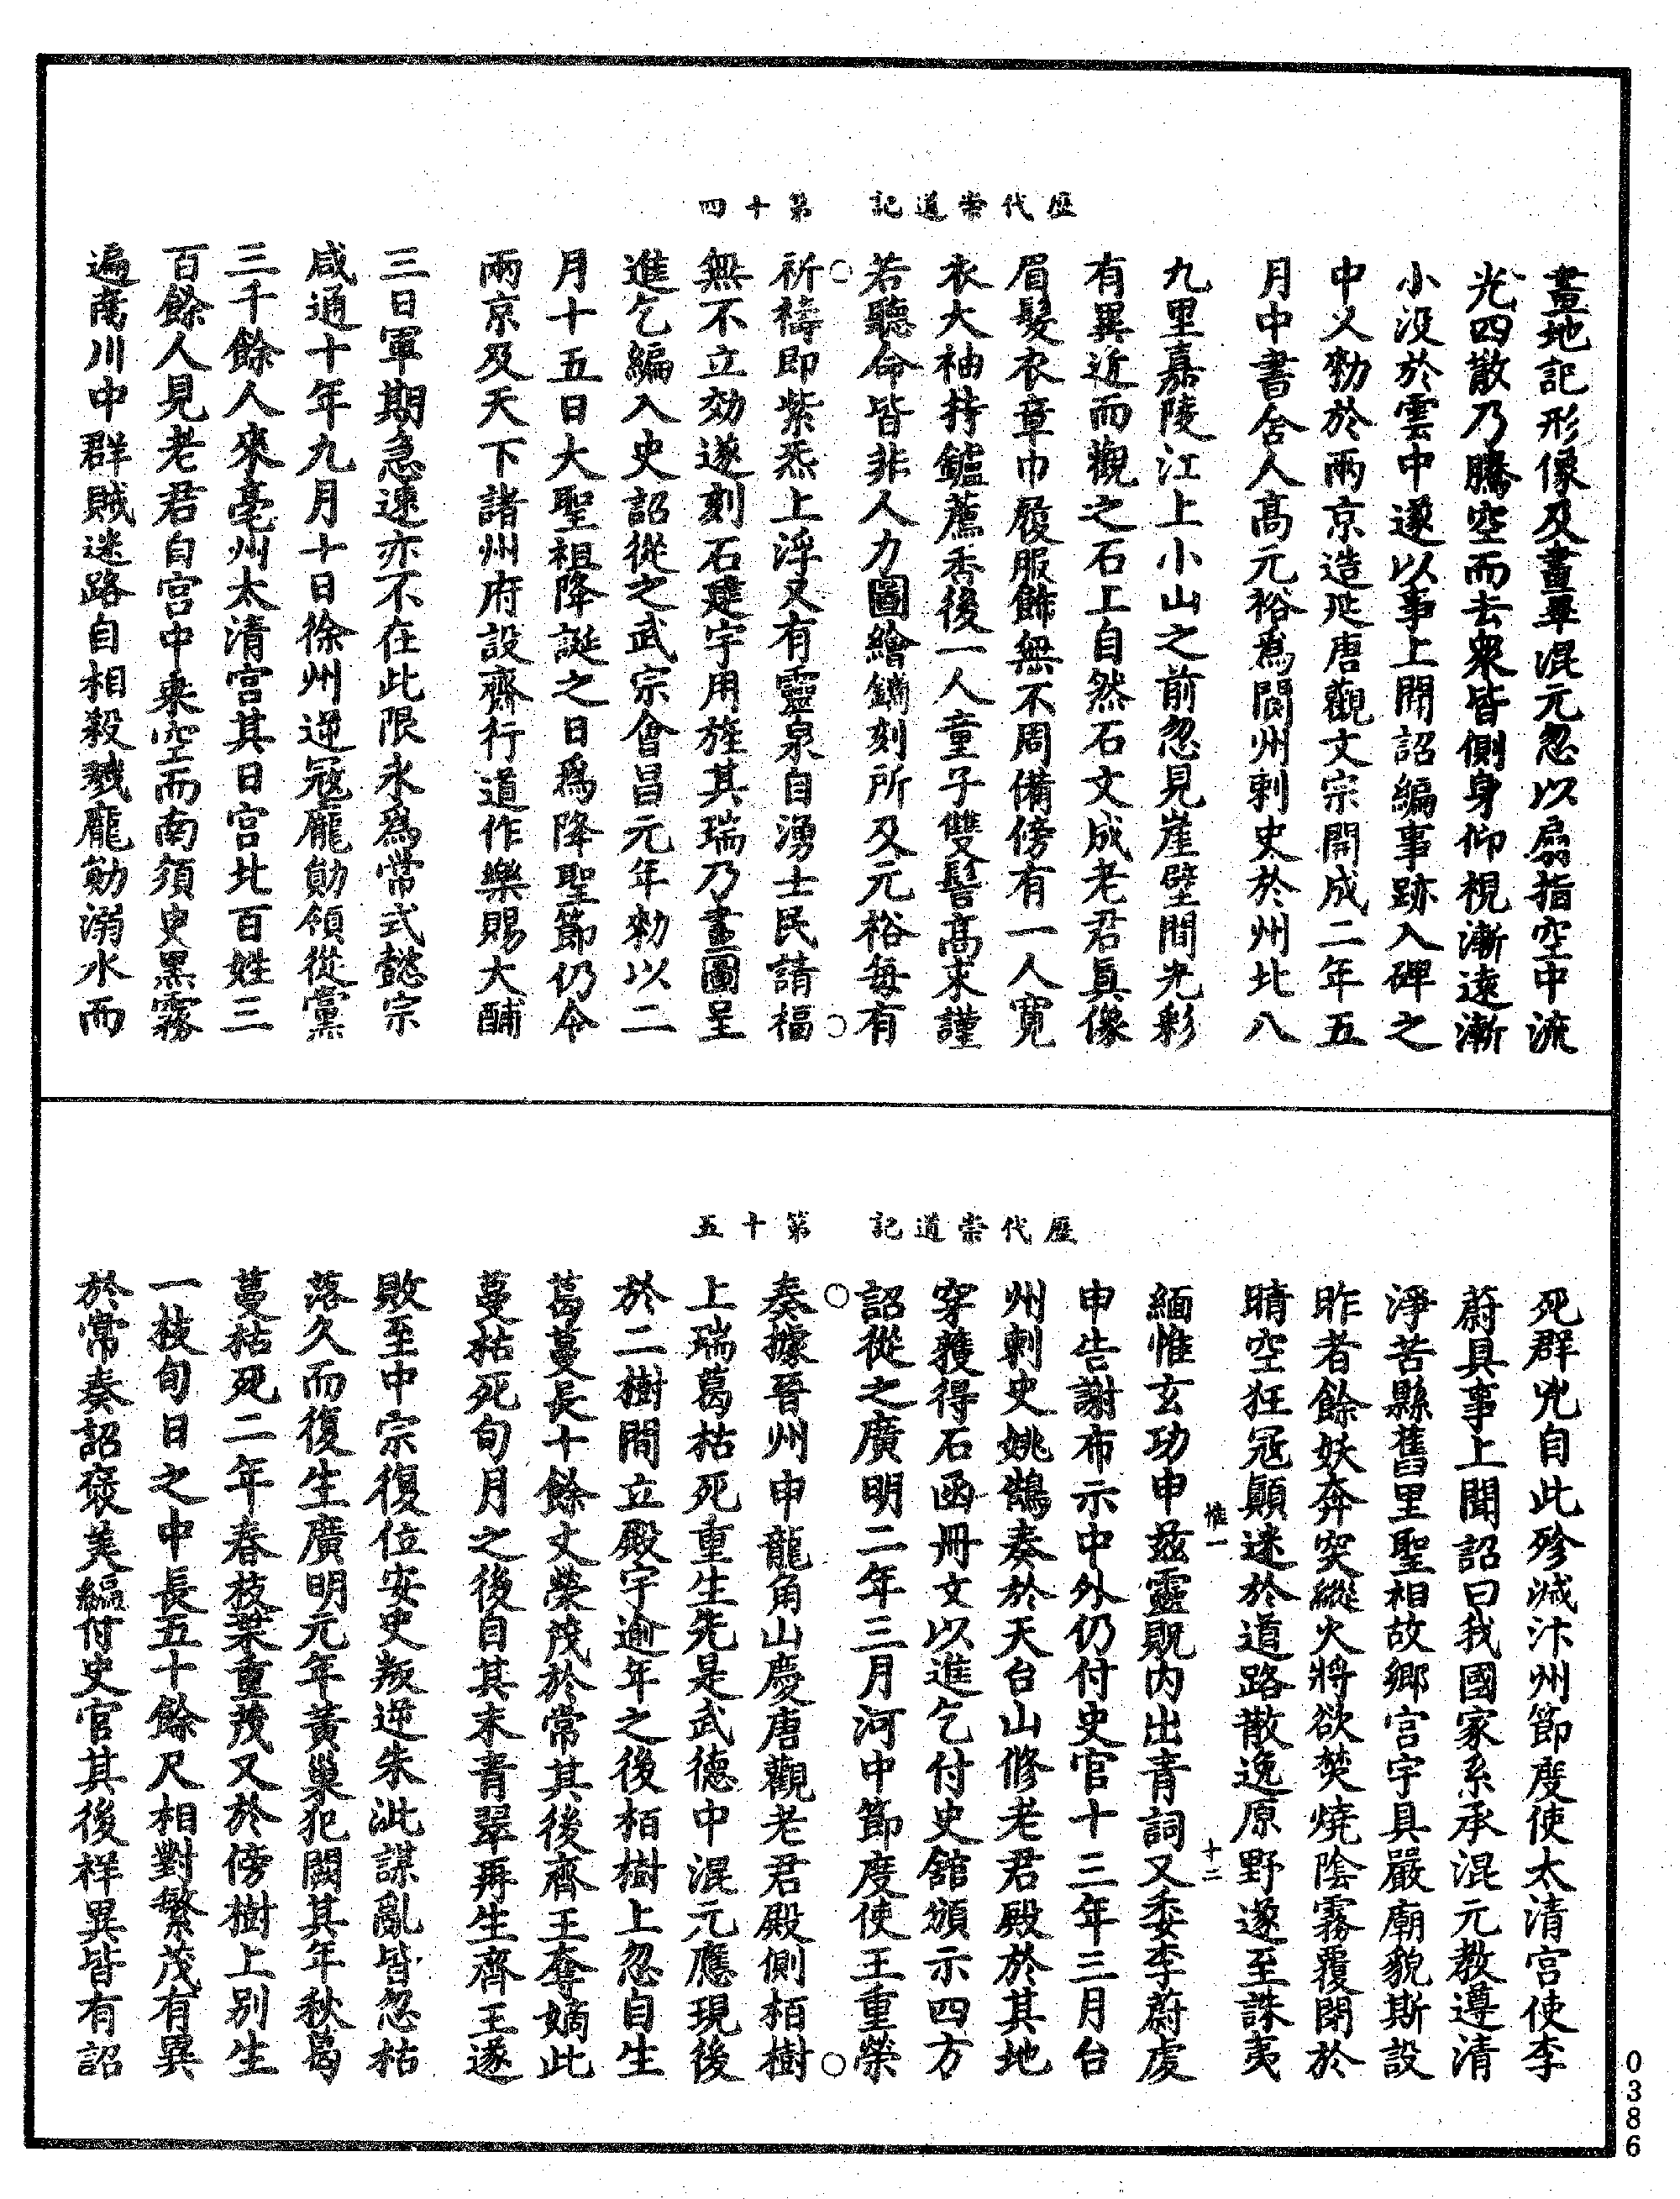 歷代崇道記　第十四
畫地記形像及畫畢混元忽以扇指空中流
光四散乃騰空而去衆皆側身仰視漸遠漸
小没於雲中遂以事上聞詔編事跡入碑之
中乂勑於兩京造延唐觀文宗開成二年五
月中書舍人髙元裕爲閬州剌史於州北八
九里嘉陵江上小山之前忽見崖壁間光彩
有異近而觀之石上自然石文成老君眞像
眉髮衣章巾履服飾無不周備傍有一人寛
衣大袖持鑪薦香後一人童子雙髻髙求謹
若聽命皆非人力圖繪鐫刻所及元裕每有
祈禱即紫炁上浮又有靈泉自湧士民請福
無不立効遂刻石建宇用旌其瑞乃畫圖呈
進乞編入史詔從之武宗會昌元年勑以二
月十五日大聖祖降誕之日爲降聖節仍令
兩京及天下諸州府設齋行道作樂賜大酺
三日軍期急速亦不在此限永爲常式懿宗
咸通十年九月十日徐州逆冦龐勛領從黨
三千餘人來亳州太清宫其日宫北百姓三
百餘人見老君自宫中乗空而南須臾黒霧
遍滿川中群賊迷路自相殺戮龐勛溺水而
歷代崇道記　第十五
死群兇自此殄滅汴州節度使太清宫使李
蔚具事上聞詔曰我國家系承混元教遵清
淨苦縣舊里聖相故鄉宫宇具嚴廟貌斯設
昨者餘妖奔突縱火將欲焚燒陰霧覆閉於
晴空狂冦顛迷於道路散逸原野遂至誅夷
惟一　十二
緬惟玄功申兹靈貺内出青詞又委李蔚虔
申告謝布示中外仍付史官十三年三月台
州剌史姚鵠奏於天台山修老君殿於其地
穿獲得石函冊文以進乞付史舘頒示四方
詔從之廣明二年三月河中節度使王重榮
奏據晉州申龍角山慶唐觀老君殿側栢樹
上瑞葛枯死重生先是武德中混元應現後
於二樹間立殿宇逾年之後栢樹上忽自生
葛蔓長十餘丈榮茂於常其後齊王奪嫡此
蔓枯死旬月之後自其末青翠再生齊王遂
敗至中宗復位安史叛逆朱泚謀亂皆忽枯
落久而復生廣明元年黃巢犯闕其年秋葛
蔓枯死二年春枝葉重茂又於傍樹上别生
一枝旬日之中長五十餘尺相對繁茂有異
於常奏詔褒美編付史官其後祥異皆有詔
0386